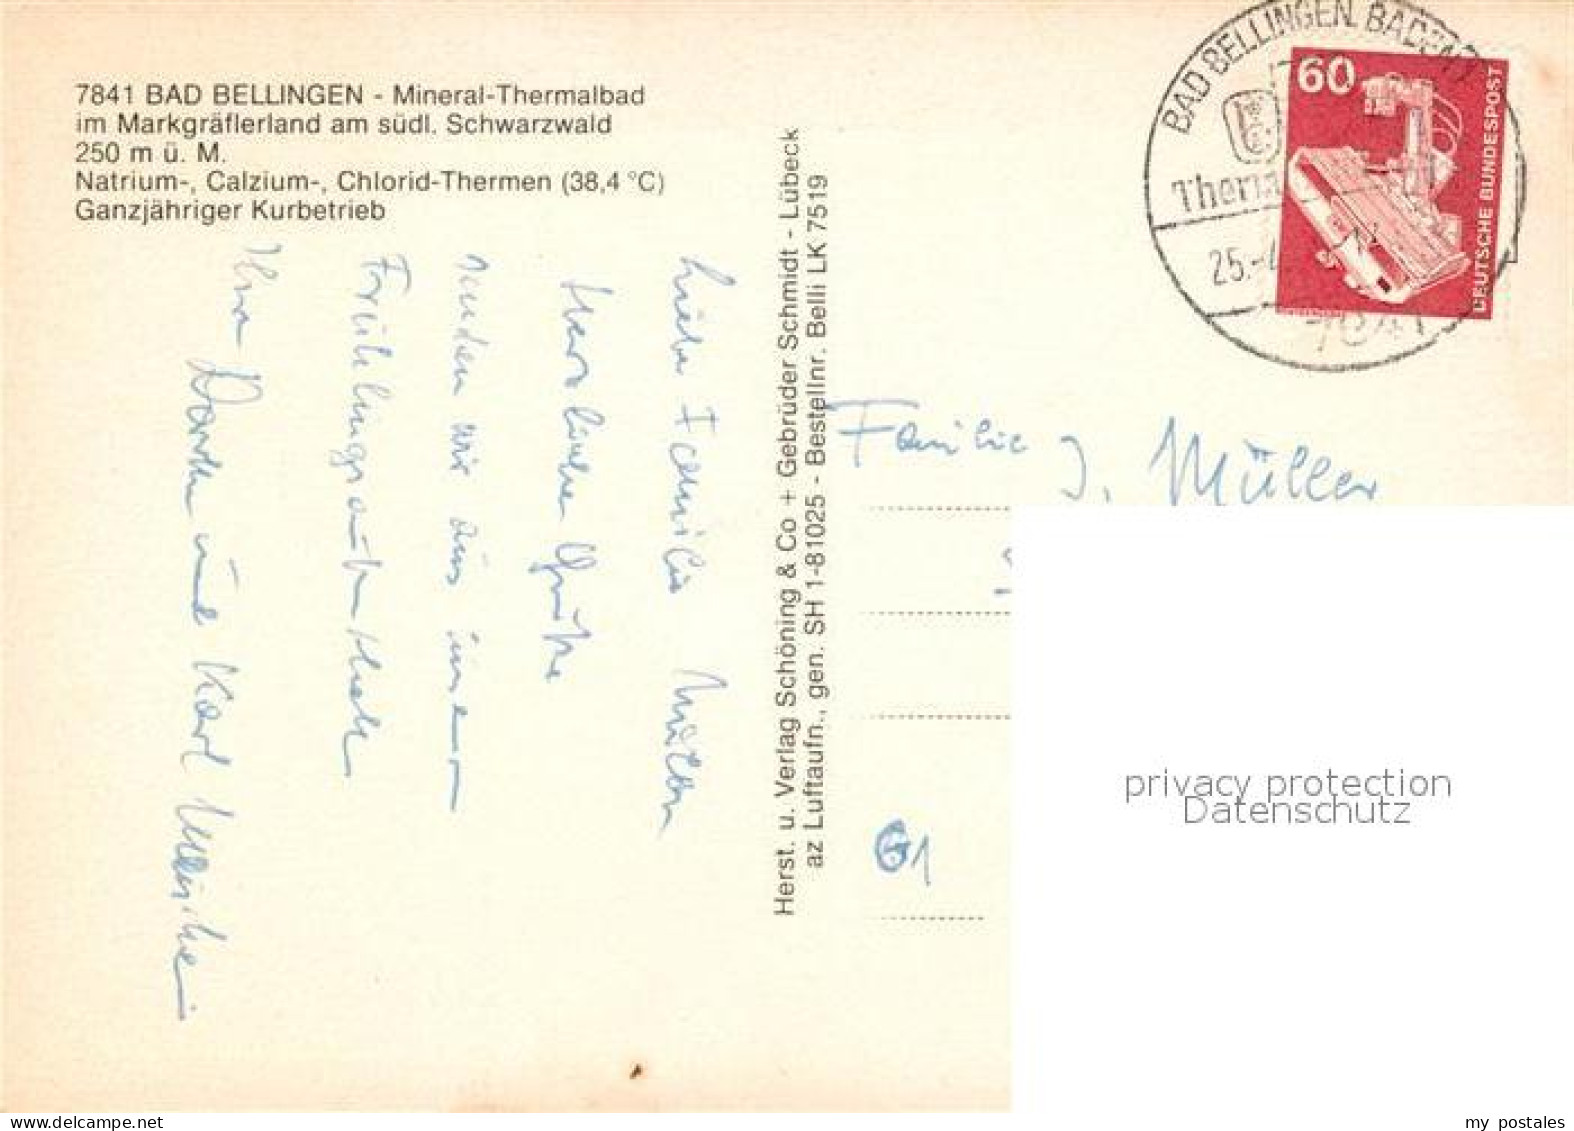 7841 BAD BELLINGEN - Mineral-Thermalbad
im Markgräflerland am südl. Schwarzwald
250 m ü. M.
Natrium-, Calzium-, Chlorid-Thermen (38,4 °C)
Ganzjähriger Kurbetrieb
Liebe Familie Müller
Herzliche Grüße
senden wir aus unserer
Ihre
und Karl
Herst. u. Verlag Schöning & Co + Gebrüder Schmidt - Lübeck
az Luftaufn., gen. SH 1-81025 - Bestellnr. Belli LK 7519
BAD BELLINGEN, BADEN
Therm
25.-4
7841
60
DEUTSCHE BUNDESPOST
Familie J. Müller
G1
privacy protection
Datenschutz
my postales
www.delcampe.net